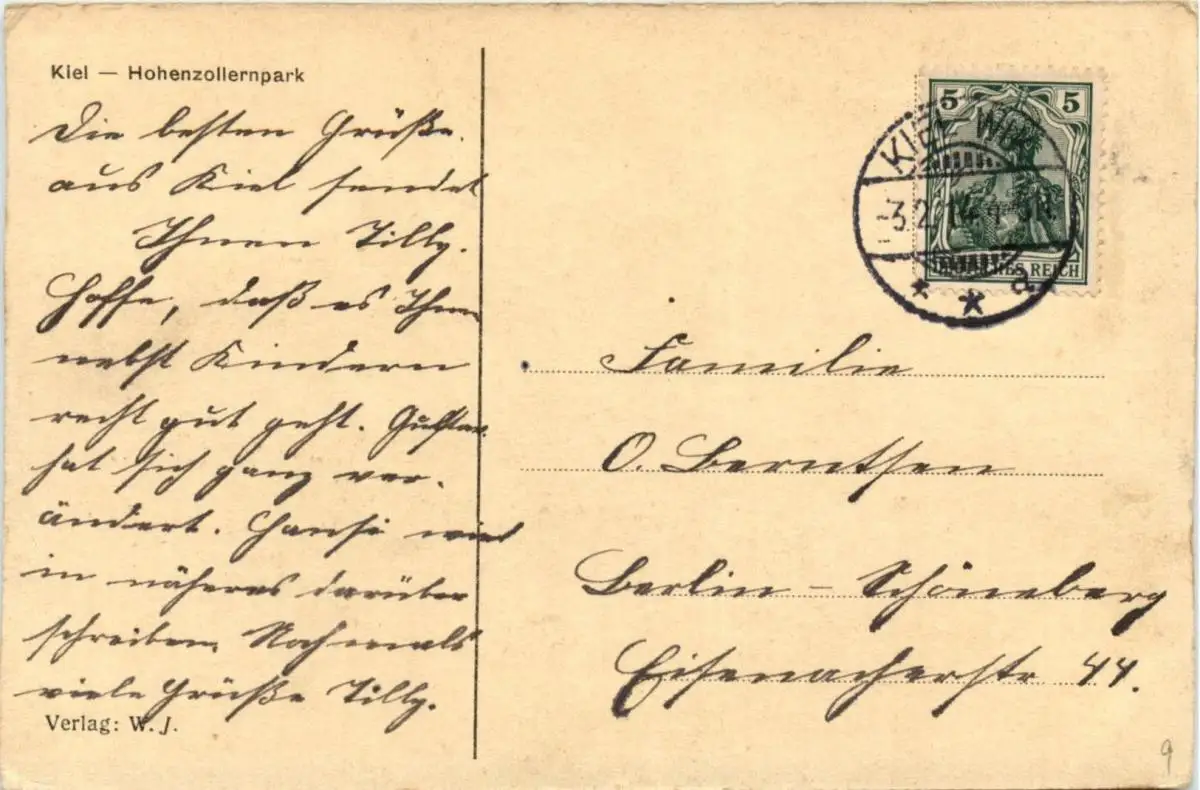 Kiel — Hohenzollernpark
Die besten Grüße
aus Kiel sendet
Ihnen Tilly.
Hoffe, daß es Ihnen
nebst Kindern
recht gut geht. Gustav
hat sich ganz ver-
ändert. Hansi wird
in näheres darüber
schreiben. Nochmals
viele Grüße Tilly.
Verlag: W. J.
5 5
KIEL - WIK
-3.2.14
* * a
DEUTSCHES REICH
Familie
O. Berntsen
Berlin - Schöneberg
Eisenacherstr 44.
9